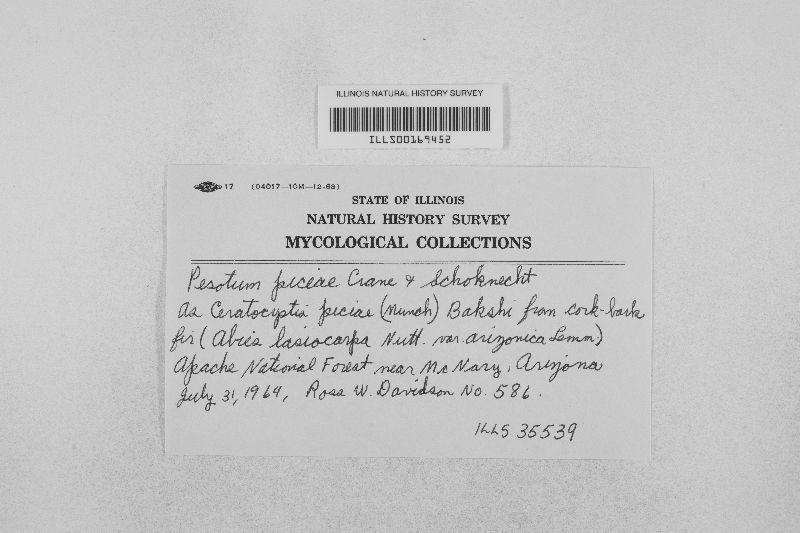 ILLINOIS NATURAL HISTORY SURVEY
ILLS00169452
17 (04017—10M—12-68)
STATE OF ILLINOIS
NATURAL HISTORY SURVEY
MYCOLOGICAL COLLECTIONS
Pesotum piceae Crane & Schoknecht
as Ceratocystis piceae (Munch) Bakshi from cork-bark
fir (Abies lasiocarpa Nutt. var. arizonica Lemm)
Apache National Forest near McNary, Arizona
July 31, 1964, Ross W. Davidson No. 586.
ILLS 35539